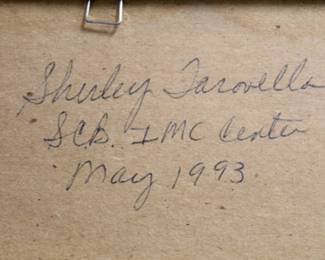 Shirley Tarovella
SCB. IMC Center
May 1993.